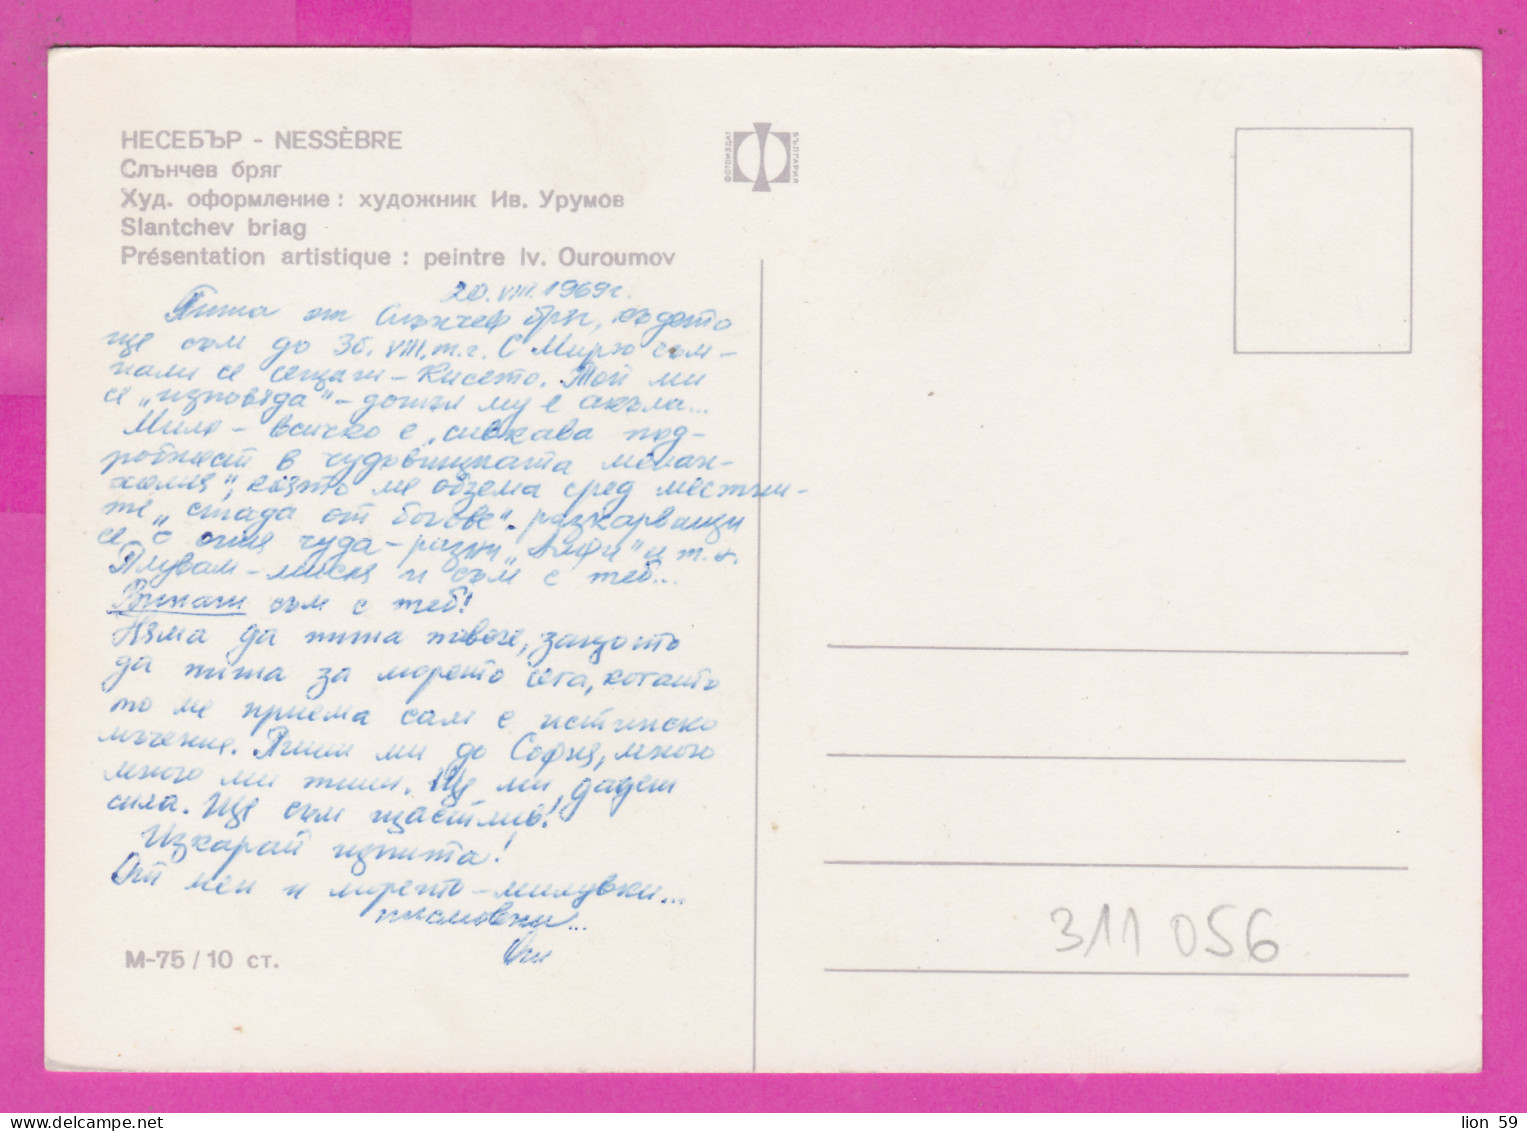 НЕСЕБЪР - NESSÈBRE
Слънчев бряг
Худ. оформление : художник Ив. Урумов
Slantchev briag
Présentation artistique : peintre Iv. Ouroumov
ФОТОИЗДАТ
БЪЛГАРИЯ
20.VIII.1969г.
Пиша от Слънчев бряг, където
ще съм до 30.VIII.т.г. С Мирчо съм-
нали се сещаш - Кисето. Той ми
се „изповяда" - дошъл му е акъла...
Мила - всичко е „сивкава под-
робност в чудовищната мелан-
холия", която ме обзема сред местни-
те „стада от богове" разкарващи
се с ония чуда - разни и т.н.
Плувам - мисля и съм с теб...
Винаги съм с теб!
Няма да пиша повече, защото
да пиша за морето сега, когато
то ме приема сам е истинско
мъчение. Пиши ми до София, много
много ми пиши. Ще ми дадеш
сила. Ще съм щастлив!
Изкарай изпита!
От мен и морето - милувки...
пламовни...
М-75 / 10 ст.
311 056
lion 59